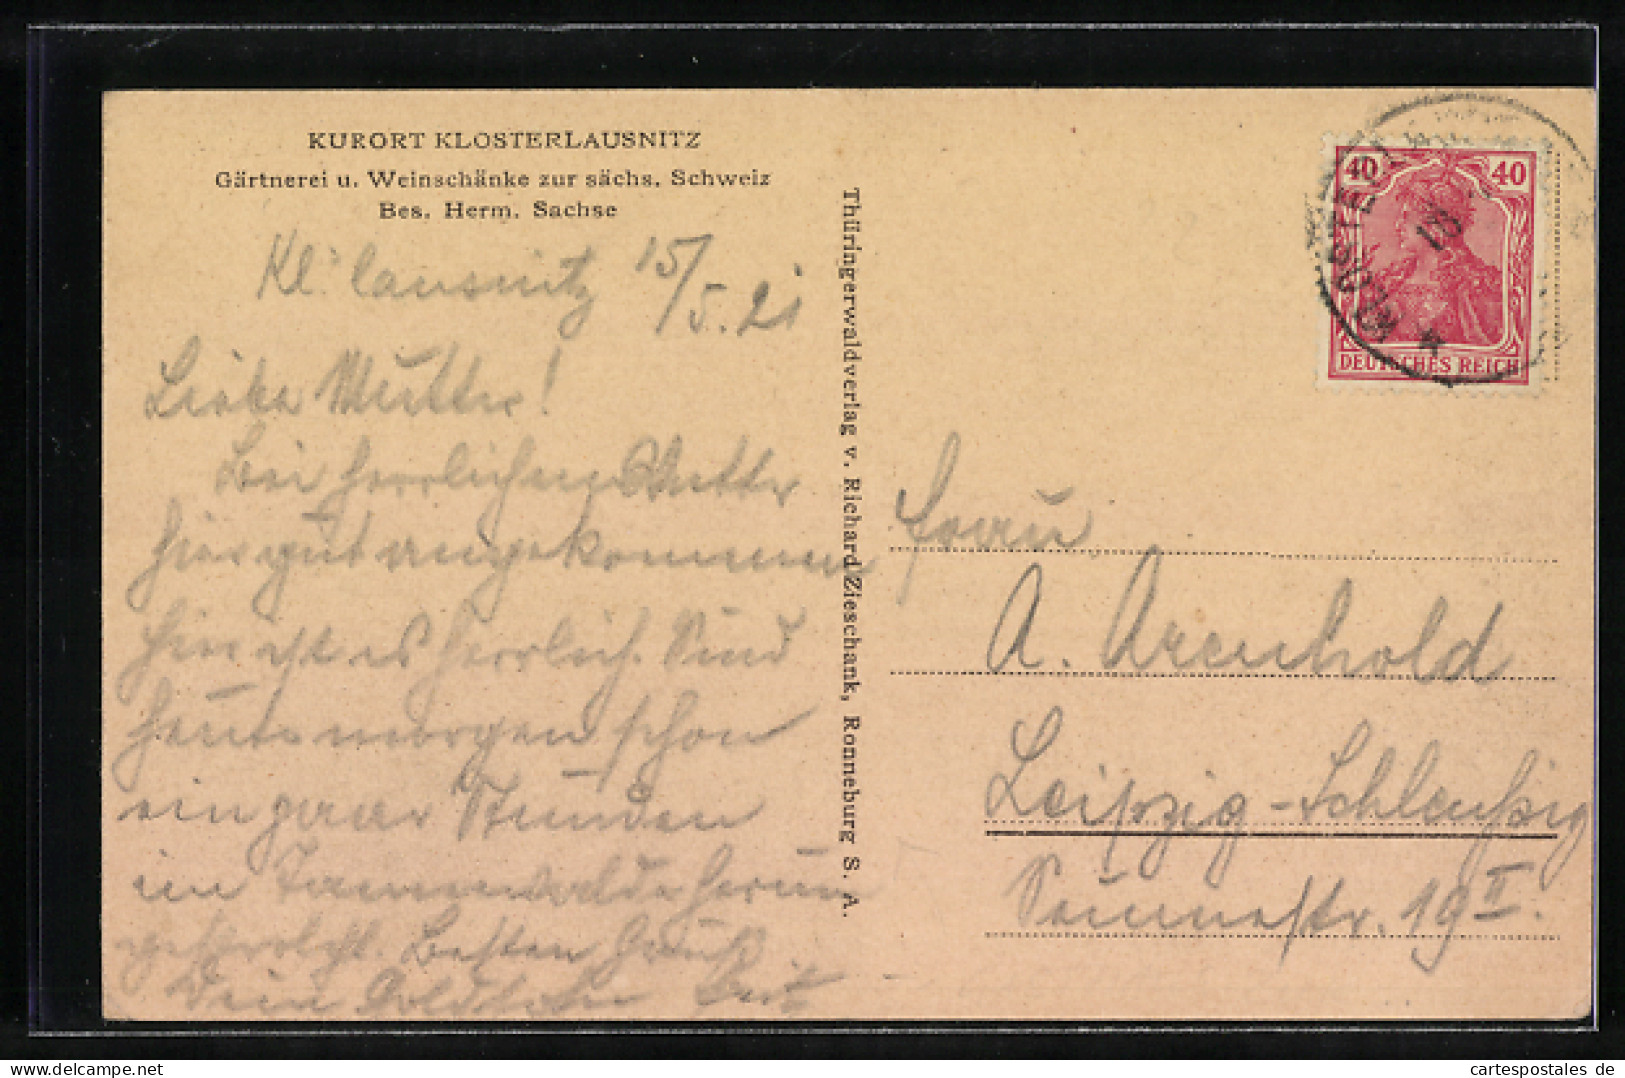 KURORT KLOSTERLAUSNITZ
Gärtnerei u. Weinschänke zur sächs. Schweiz
Bes. Herm. Sachse
Kl: lausnitz 15/5. 21
Liebe Mutter!
Bei herrlichem Wetter
hier gut angekommen
hier ist es herrlich. Sind
heute morgen schon
ein paar Stunden
im Tannenwalde herum
Besten Gruß
Dein
Thüringerwaldverlag v. Richard Zieschank, Ronneburg S. A.
40 40
DEUTSCHES REICH
Frau
A. Arenhold
Leipzig-Schleußig
19 II.
www.cartespostales.de